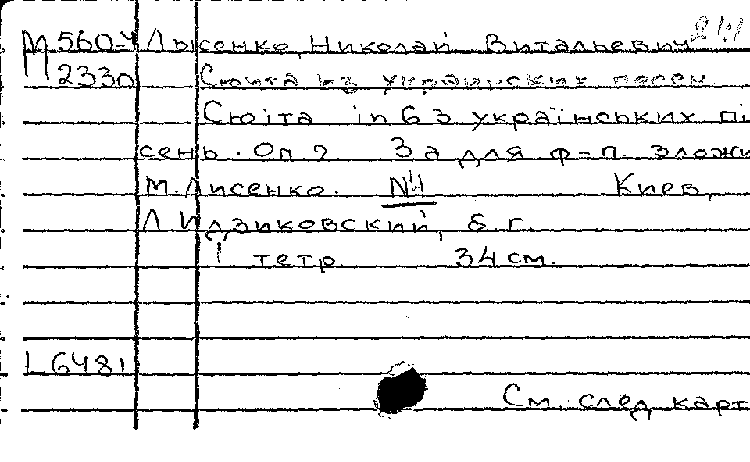 М560-4 Лысенко, Николай Витальевич
П2330 Сюита из украинских песен
Сюіта in G з українських пі
сень. Оп 2 За для ф=п. зложи
М. Лисенко. №1 Киев,
Л Идзиковский, б. г.
1 тетр. 34 см.
L 6481
См. след карт